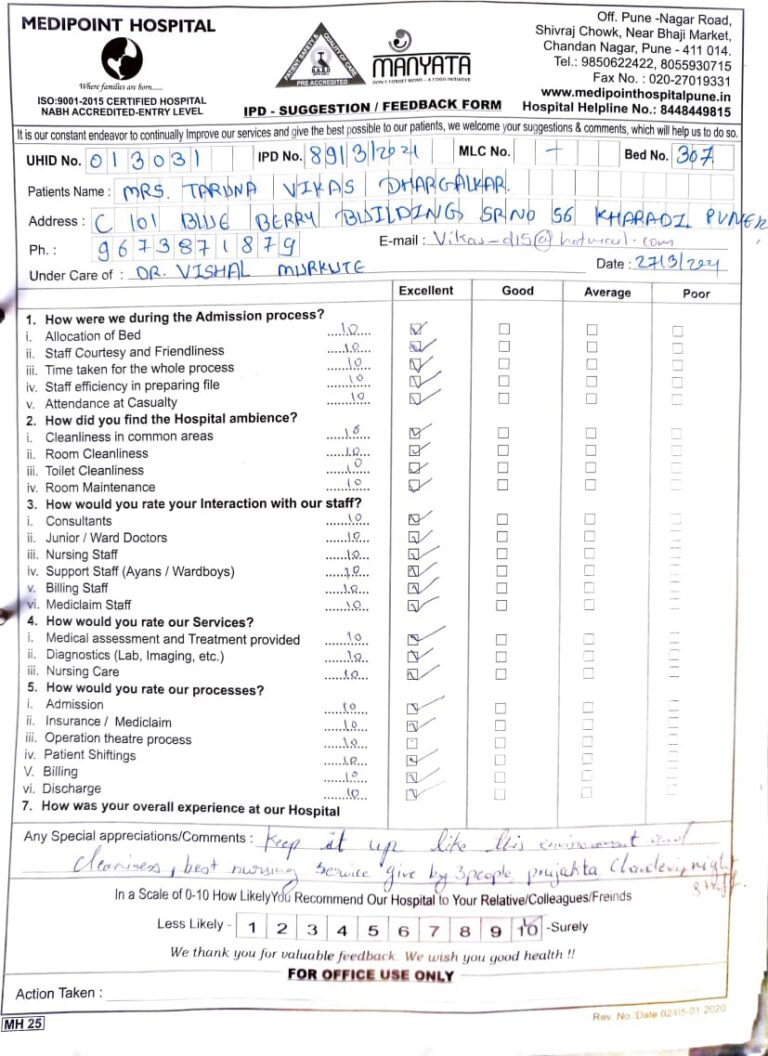 MEDIPOINT HOSPITAL
Where families are born......
ISO:9001-2015 CERTIFIED HOSPITAL
NABH ACCREDITED-ENTRY LEVEL
PATIENT SAFETY & QUALITY OF CARE
PRE ACCREDITED
MANYATA
IPD - SUGGESTION / FEEDBACK FORM
Off. Pune -Nagar Road,
Shivraj Chowk, Near Bhaji Market,
Chandan Nagar, Pune - 411 014.
Tel.: 9850622422, 8055930715
Fax No. : 020-27019331
www.medipointhospitalpune.in
Hospital Helpline No.: 8448449815
It is our constant endeavor to continually Improve our services and give the best possible to our patients, we welcome your suggestions & comments, which will help us to do so.
UHID No. 013031 IPD No. 891/3/2021 MLC No. - Bed No. 307
Patients Name : MRS. TARUNA VIKAS DHARGALKAR
Address : C 101 BLUE BERRY BUILDING SRNO 56 KHARADI PUNE
Ph. : 9673871879 E-mail : Vikas_d15@hotmail.com
Under Care of : DR. VISHAL MURKUTE Date : 27/3/2021
Excellent Good Average Poor
1. How were we during the Admission process?
i. Allocation of Bed ....10....
ii. Staff Courtesy and Friendliness ....10....
iii. Time taken for the whole process ....10....
iv. Staff efficiency in preparing file ....10....
v. Attendance at Casualty ....10....
2. How did you find the Hospital ambience?
i. Cleanliness in common areas ....10....
ii. Room Cleanliness ....10....
iii. Toilet Cleanliness ....10....
iv. Room Maintenance ....10....
3. How would you rate your Interaction with our staff?
i. Consultants ....10....
ii. Junior / Ward Doctors ....10....
iii. Nursing Staff ....10....
iv. Support Staff (Ayans / Wardboys) ....10....
v. Billing Staff ....10....
vi. Mediclaim Staff ....10....
4. How would you rate our Services?
i. Medical assessment and Treatment provided ....10....
ii. Diagnostics (Lab, Imaging, etc.) ....10....
iii. Nursing Care ....10....
5. How would you rate our processes?
i. Admission ....10....
ii. Insurance / Mediclaim ....10....
iii. Operation theatre process ....10....
iv. Patient Shiftings ....10....
V. Billing ....10....
vi. Discharge ....10....
7. How was your overall experience at our Hospital
Any Special appreciations/Comments : Keep it up like this environment and
cleaniness, best nursing service give by 3people night
staff.
In a Scale of 0-10 How Likely You Recommend Our Hospital to Your Relative/Colleagues/Freinds
Less Likely - 1 2 3 4 5 6 7 8 9 10 -Surely
We thank you for valuable feedback. We wish you good health !!
FOR OFFICE USE ONLY
Action Taken :
MH 25
Rev. No /Date 02/05-01-2020